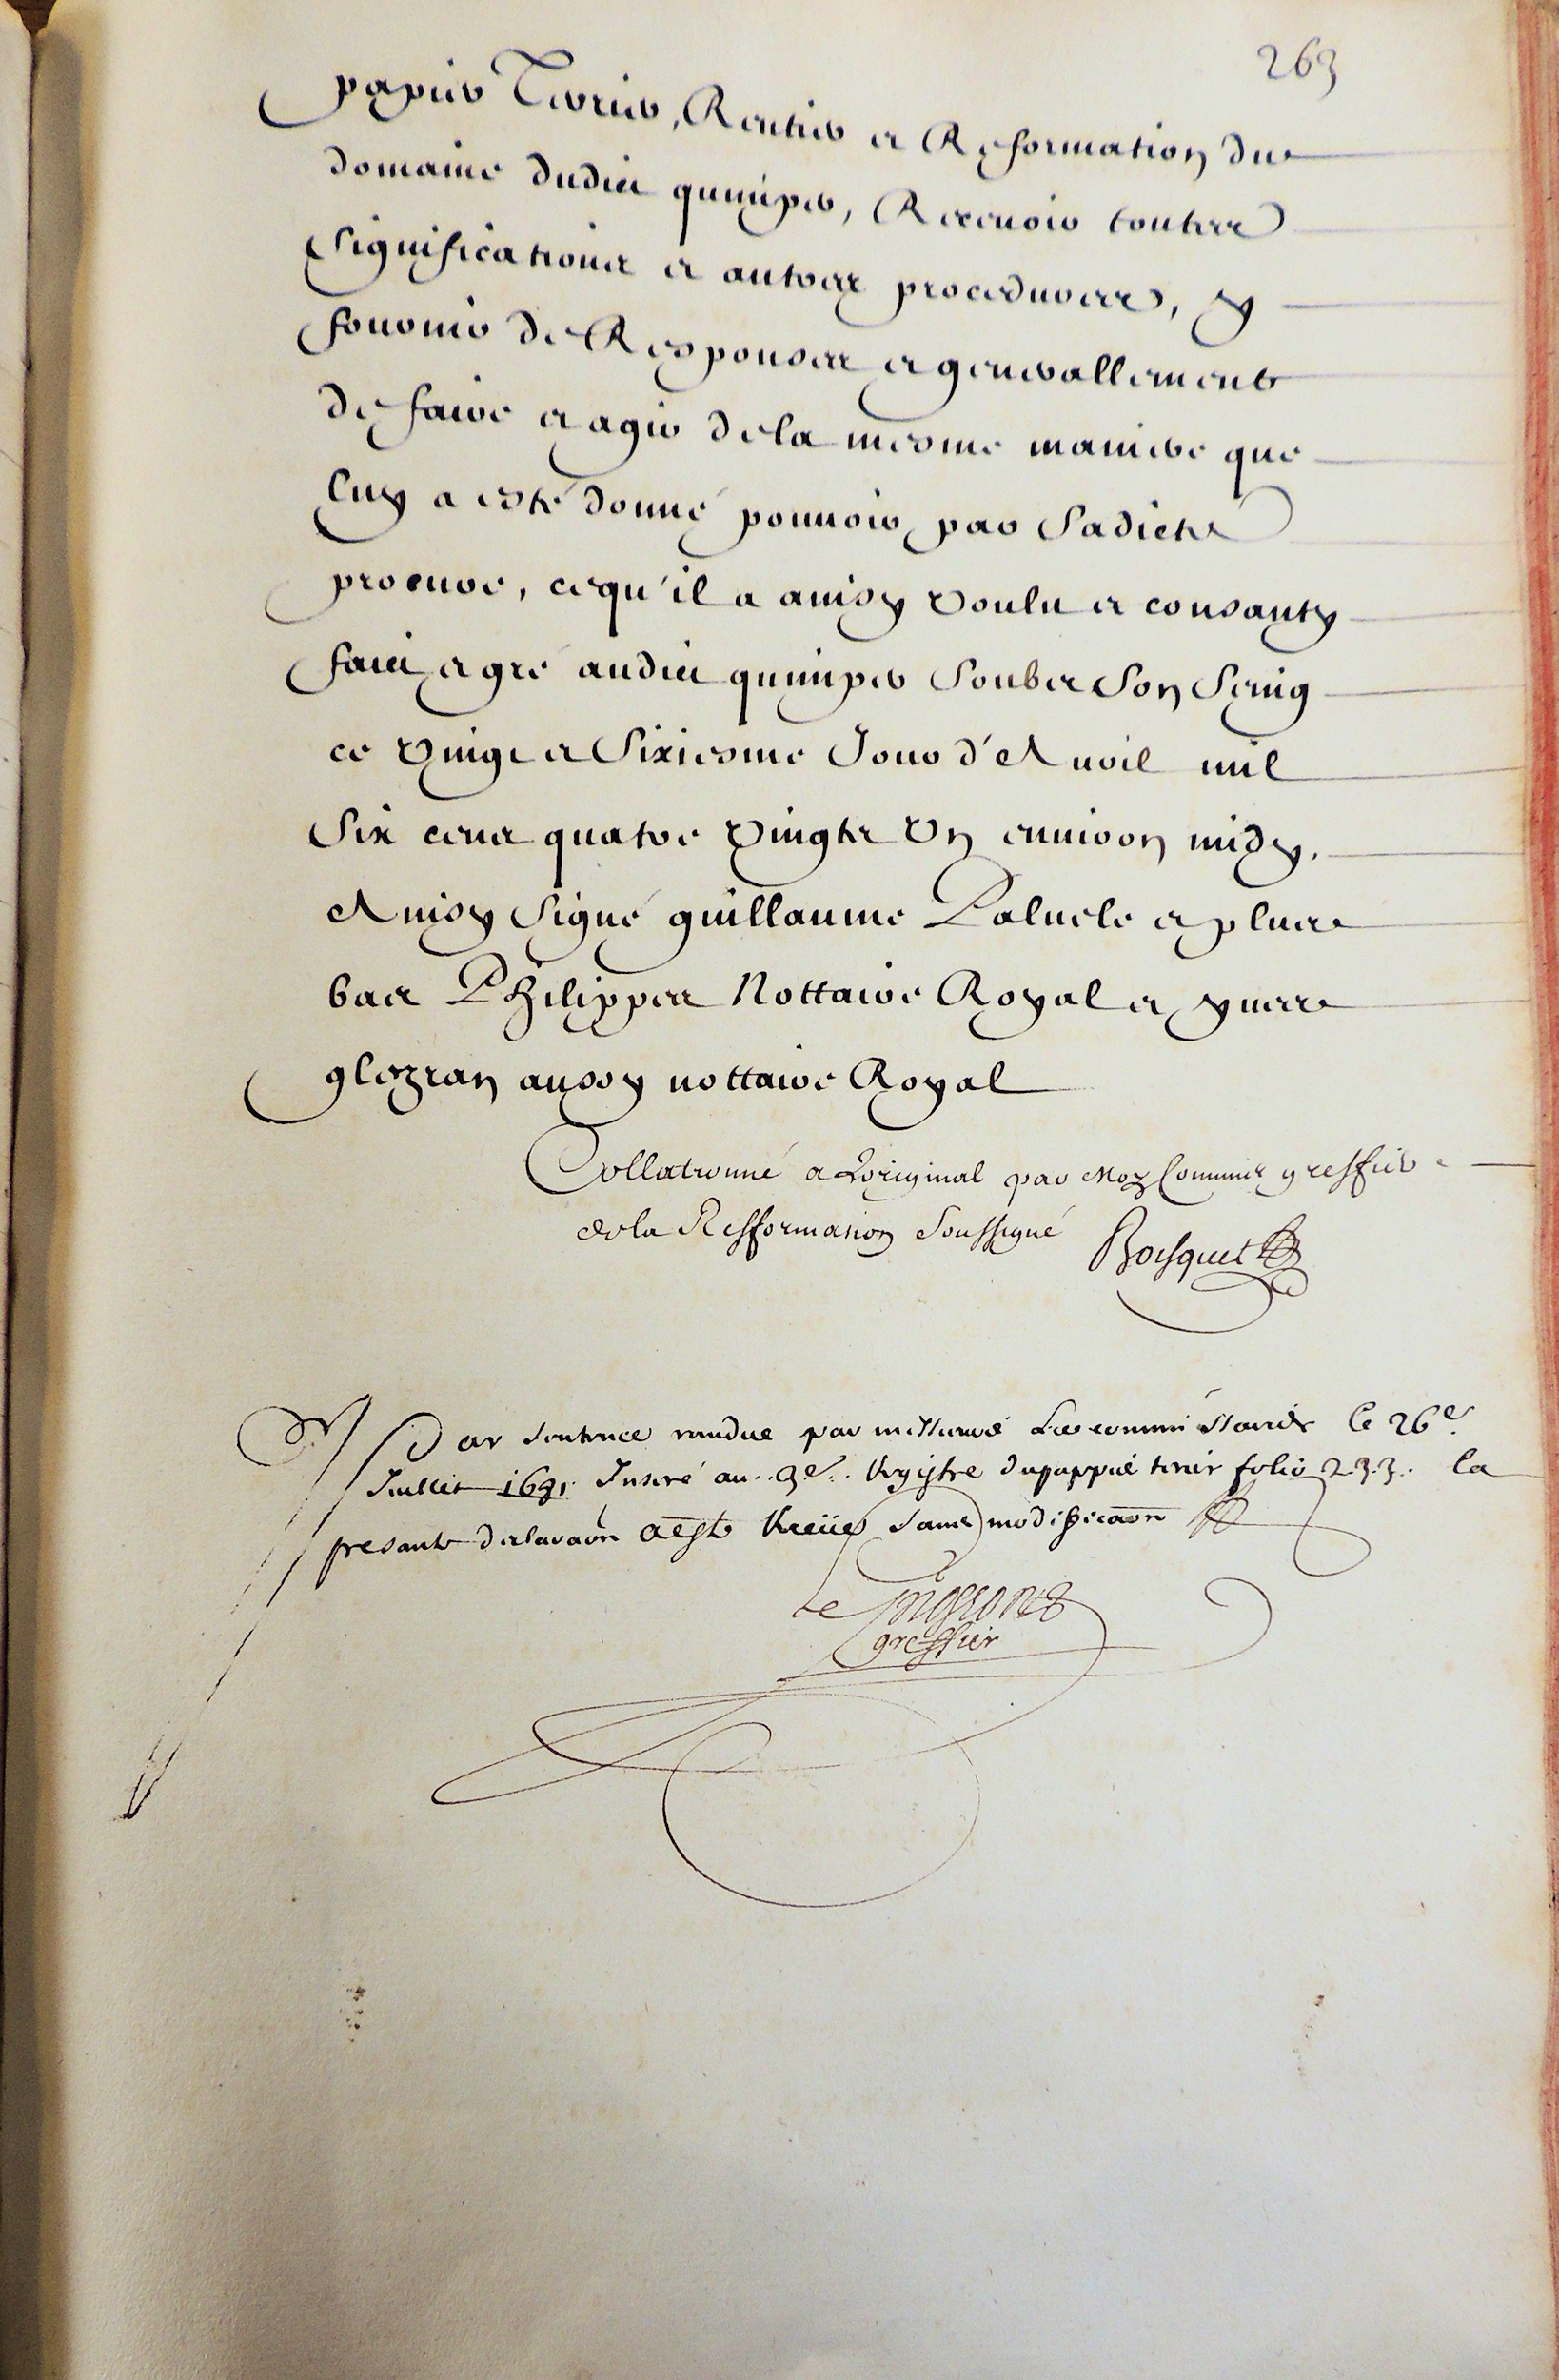 263
papier Terrier, Rentier et Reformation du
domaine dudict quimper, Recevoir touttes
significations et autres procedures, y
fournir de Responses et generallement
de faire et agir de la mesme maniere que
luy a esté donné pouvoir par Sadicte
procure, ce qu'il a ainsy voulu et consanty
faict et gré audict quimper soubs son seing
ce vingt et sixiesme Jour d'Avril mil
six cens quatre vingts un environ midy.
Ainsy signé guillaume et plus
bas Philippes Nottaire Royal et yves
glezran aussy nottaire Royal
Collationné a Loriginal par Moy Commis greffier
de la Refformation Soussigné Bosquet
Par sentence randue par messieurs Les commissaires le 26e
Juillet 1691 Inseré au 9e Registre du pappié terrier folio 233. la
presante declaraon a esté Receüe sans modifficaon
Le
greffier